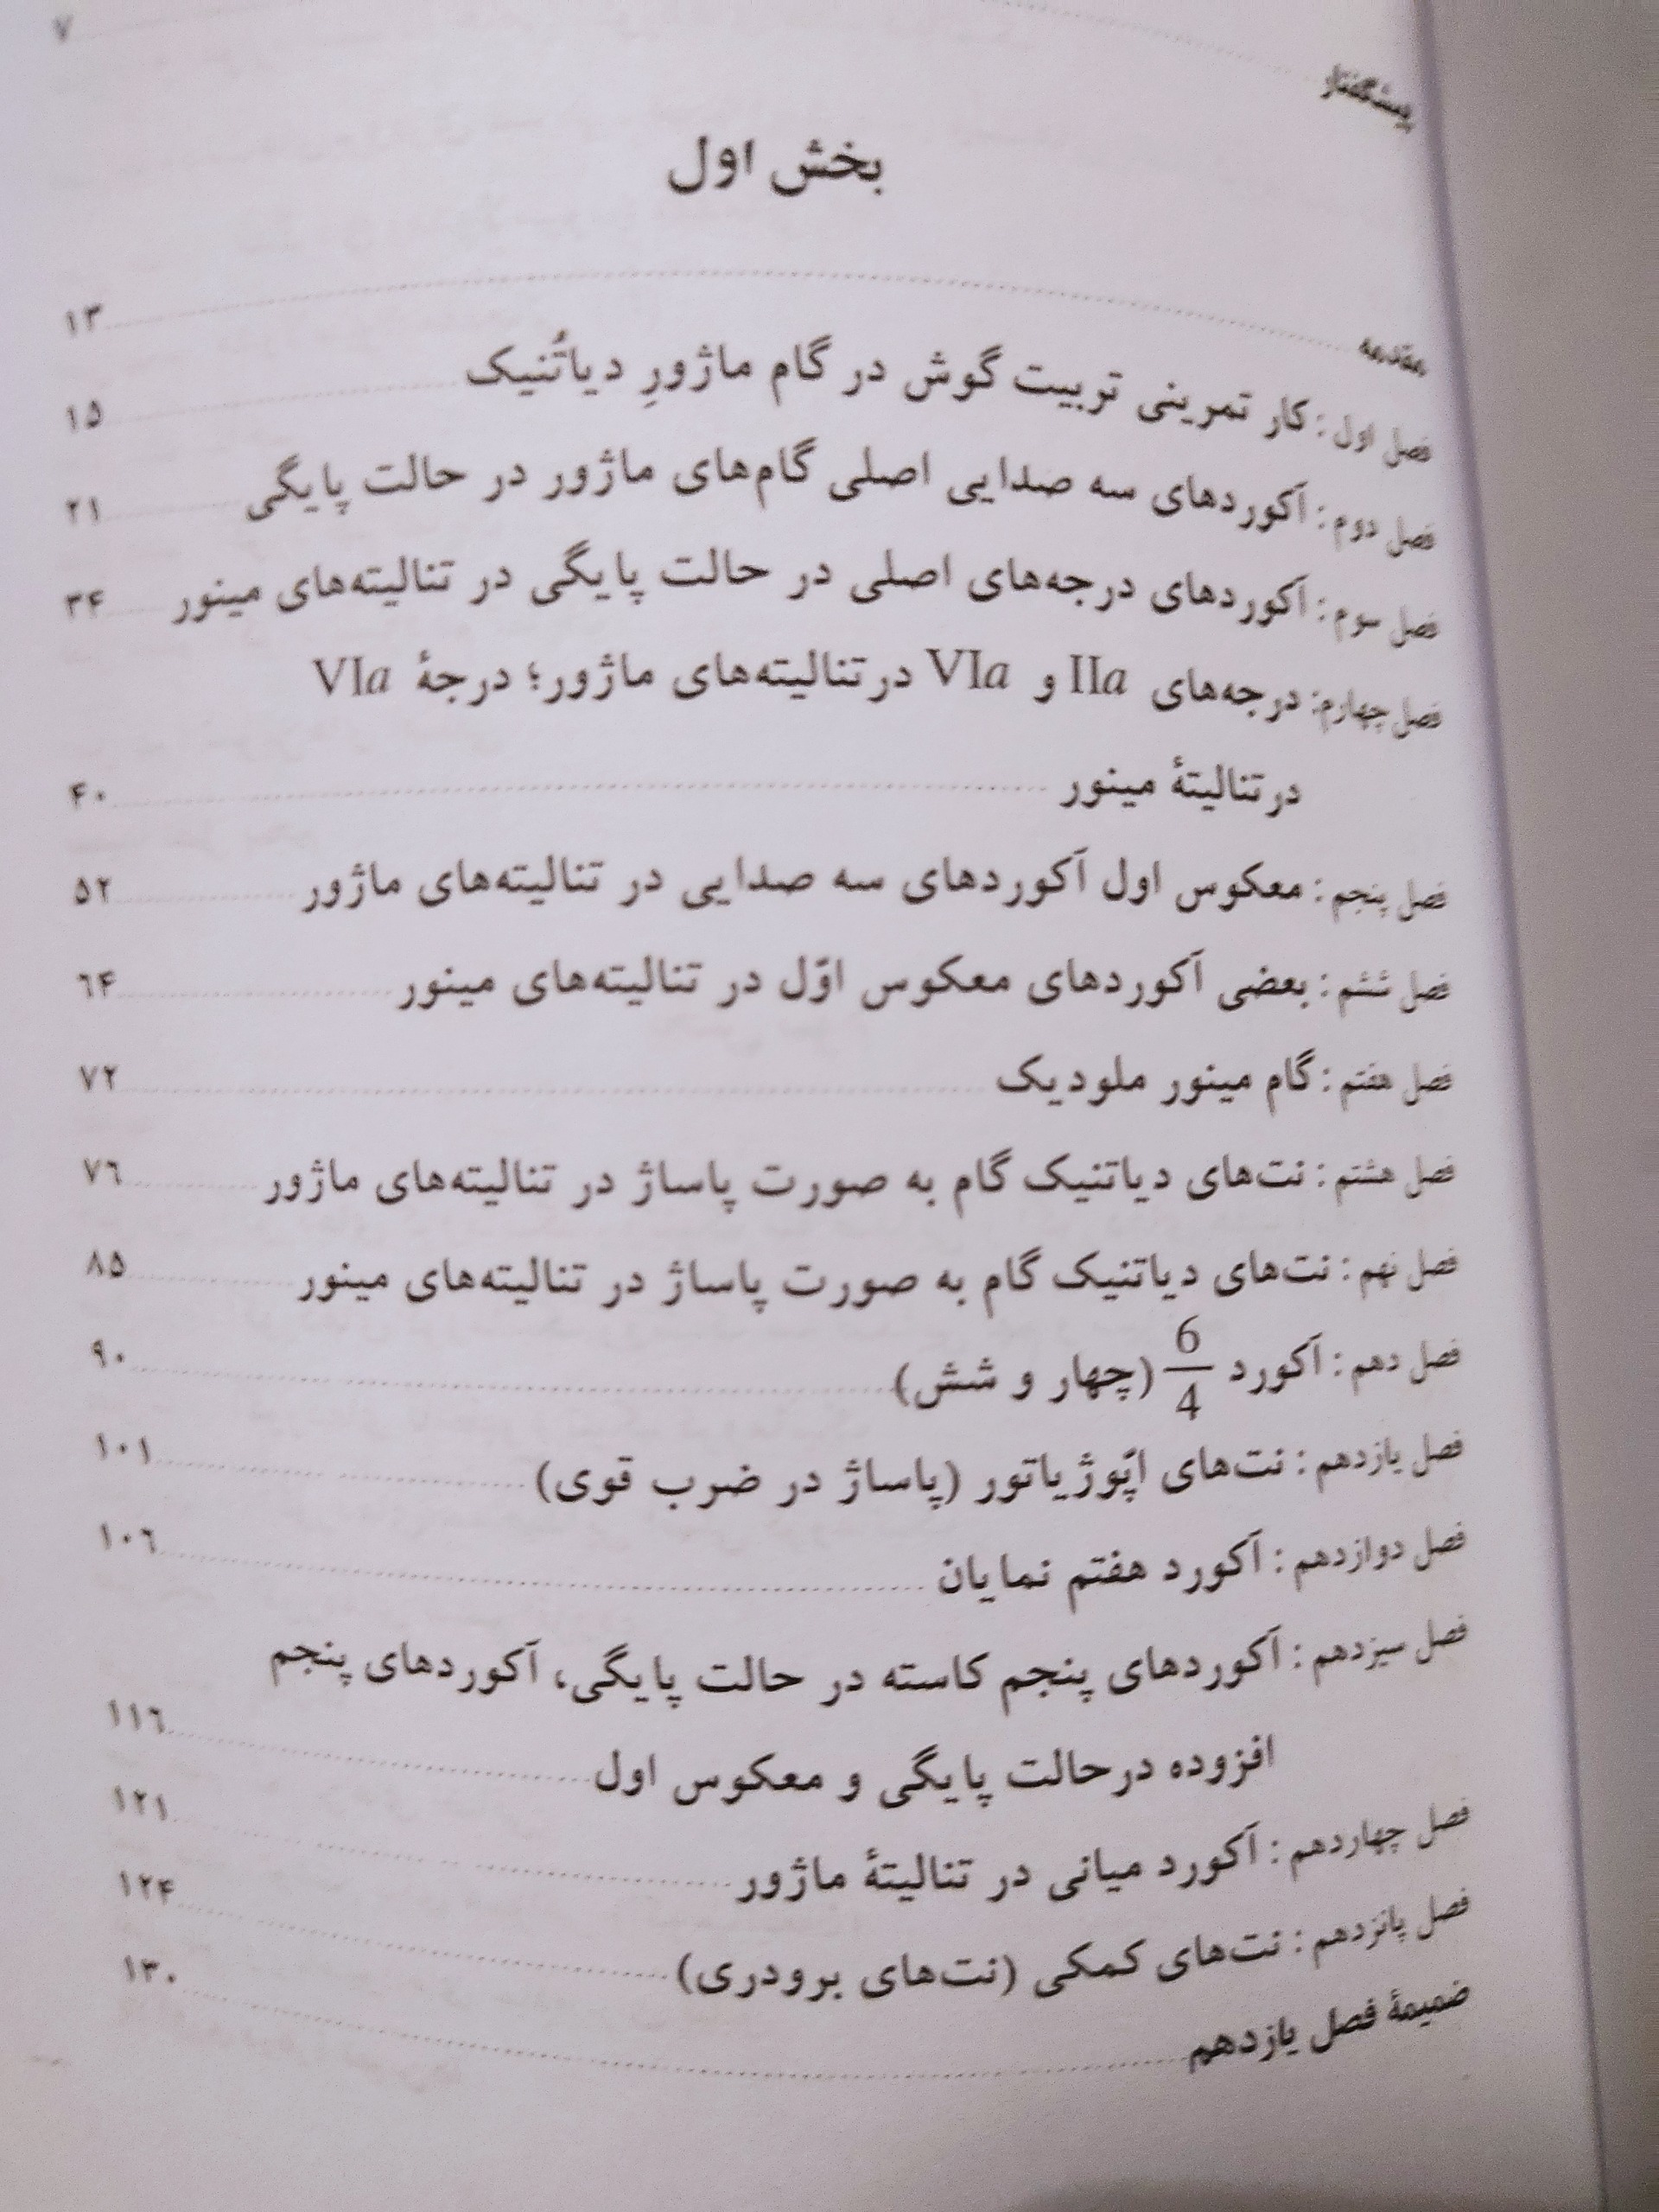 پیشگفتار ۷
بخش اول
مقدمه ۱۳
فصل اول : کار تمرینی تربیت گوش در گام ماژورِ دیاتُنیک ۱۵
فصل دوم : آکوردهای سه صدایی اصلی گام‌های ماژور در حالت پایگی ۲۱
فصل سوم : آکوردهای درجه‌های اصلی در حالت پایگی در تنالیته‌های مینور ۳۴
فصل چهارم: درجه‌های IIa و VIa در تنالیته‌های ماژور؛ درجهٔ VIa
در تنالیتهٔ مینور ۴۰
فصل پنجم : معکوس اول آکوردهای سه صدایی در تنالیته‌های ماژور ۵۲
فصل ششم : بعضی آکوردهای معکوس اوّل در تنالیته‌های مینور ۶۴
فصل هفتم : گام مینور ملودیک ۷۲
فصل هشتم : نت‌های دیاتنیک گام به صورت پاساژ در تنالیته‌های ماژور ۷۶
فصل نهم : نت‌های دیاتنیک گام به صورت پاساژ در تنالیته‌های مینور ۸۵
فصل دهم : آکورد 6/4 (چهار و شش) ۹۰
فصل یازدهم : نت‌های اپّوژیاتور (پاساژ در ضرب قوی) ۱۰۱
فصل دوازدهم : آکورد هفتم نمایان ۱۰۶
فصل سیزدهم : آکوردهای پنجم کاسته در حالت پایگی، آکوردهای پنجم
افزوده درحالت پایگی و معکوس اول ۱۱۶
فصل چهاردهم : آکورد میانی در تنالیتهٔ ماژور ۱۲۱
فصل پانزدهم : نت‌های کمکی (نت‌های برودری) ۱۲۴
ضمیمهٔ فصل یازدهم ۱۳۰